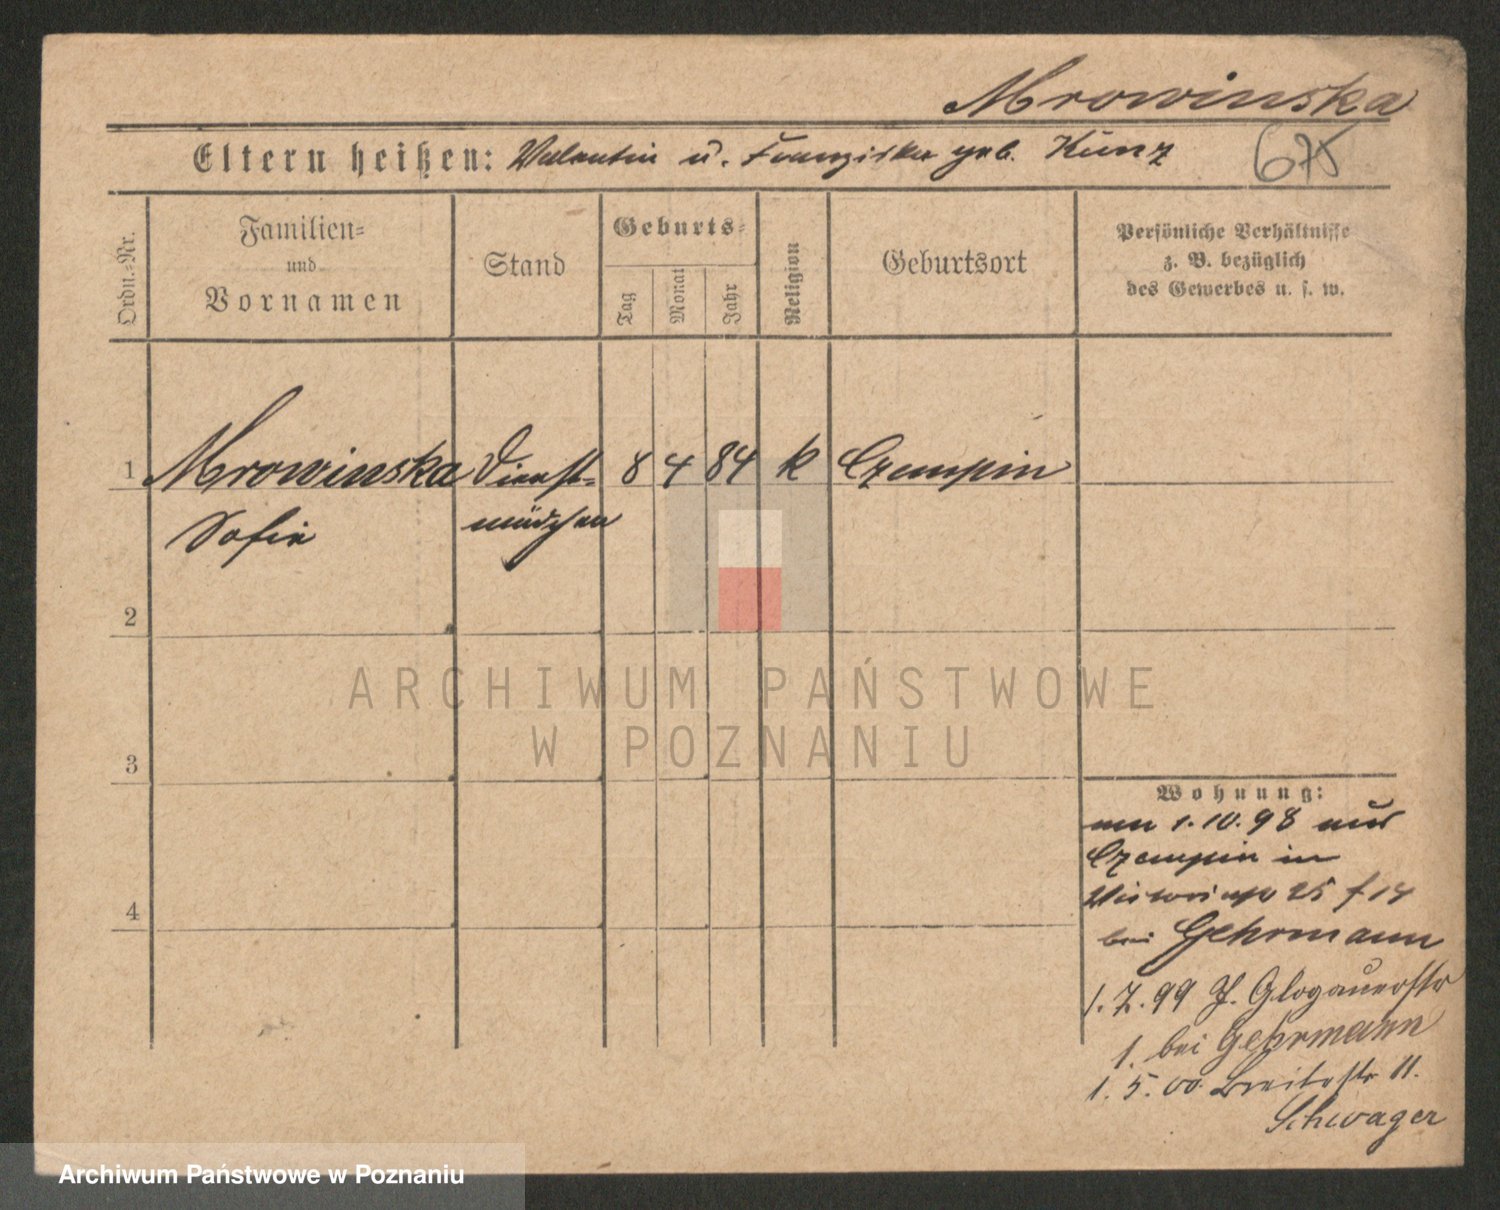 Mrowinska
Eltern heißen: Valentin u. Franziska geb. Kunz
675
Ordn.-Nr.
Familien-
und
Vornamen
Stand
Geburts-
Tag
Monat
Jahr
Religion
Geburtsort
Persönliche Verhältnisse
z. B. bezüglich
des Gewerbes u. s. w.
1 Mrowinska Dienst- 8 4 84 k Czempin
Sofie mädchen
2
3
4
ARCHIWUM PAŃSTWOWE
W POZNANIU
Wohnung:
am 1.10.98 aus
Czempin in
25
bei Gehrmann
1.7.99 Glogauerstr
1. bei Gehrmann
1.5.00. Breitestr 11.
Schwager
Archiwum Państwowe w Poznaniu